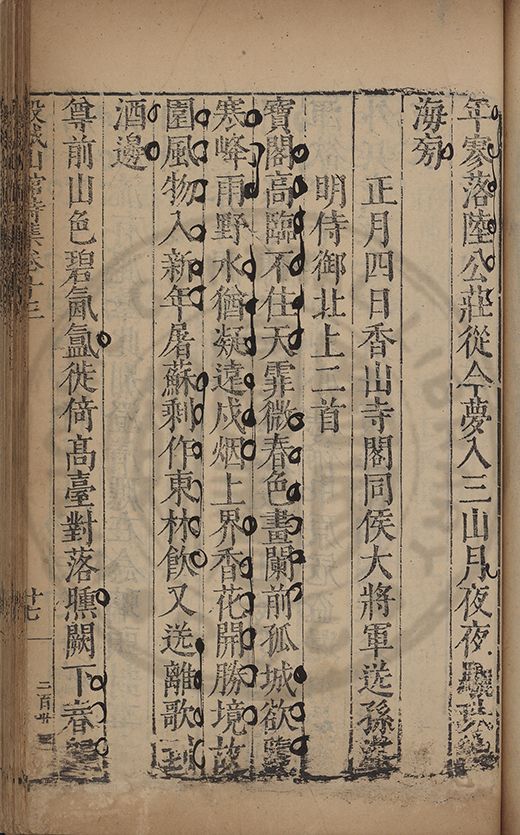 年寥落陸公莊從今夢入三山月夜夜
海旁
正月四日香山寺閣同侯大將軍送孫
明侍御北上二首
寶閣高臨不住天霏微春色畫闌前孤城欲
寒峰雨野水猶凝遠戍烟上界香花開勝境故
園風物入新年屠蘇剩作東林飲又送離歌到
酒邊
尊前山色碧氤氳徙倚高臺對落曛闕下春
城山館詩集卷十三
十七
二百廿